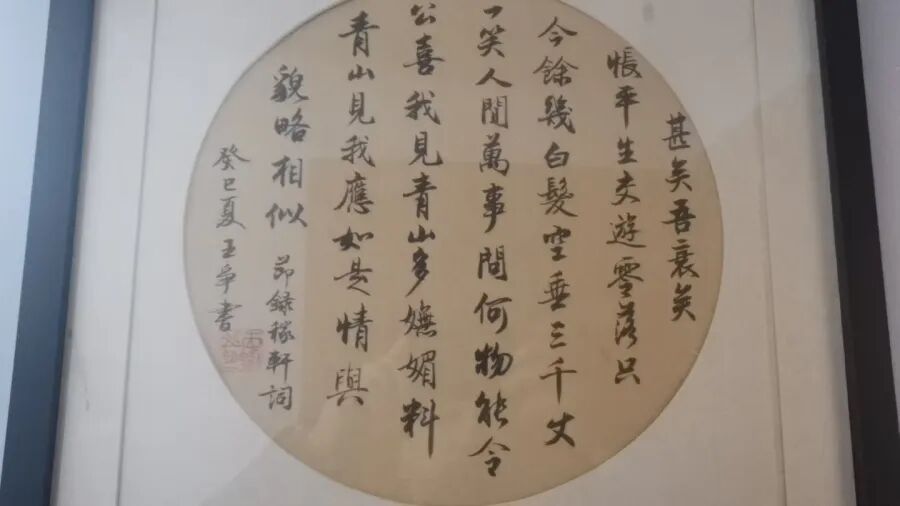 甚矣吾衰矣
悵平生交遊零落只
今餘幾白髮空垂三千丈
一笑人間萬事間何物能令
公喜我見青山多嫵媚料
青山見我應如是情與
貌略相似 節錄稼軒詞
癸巳夏王爭書